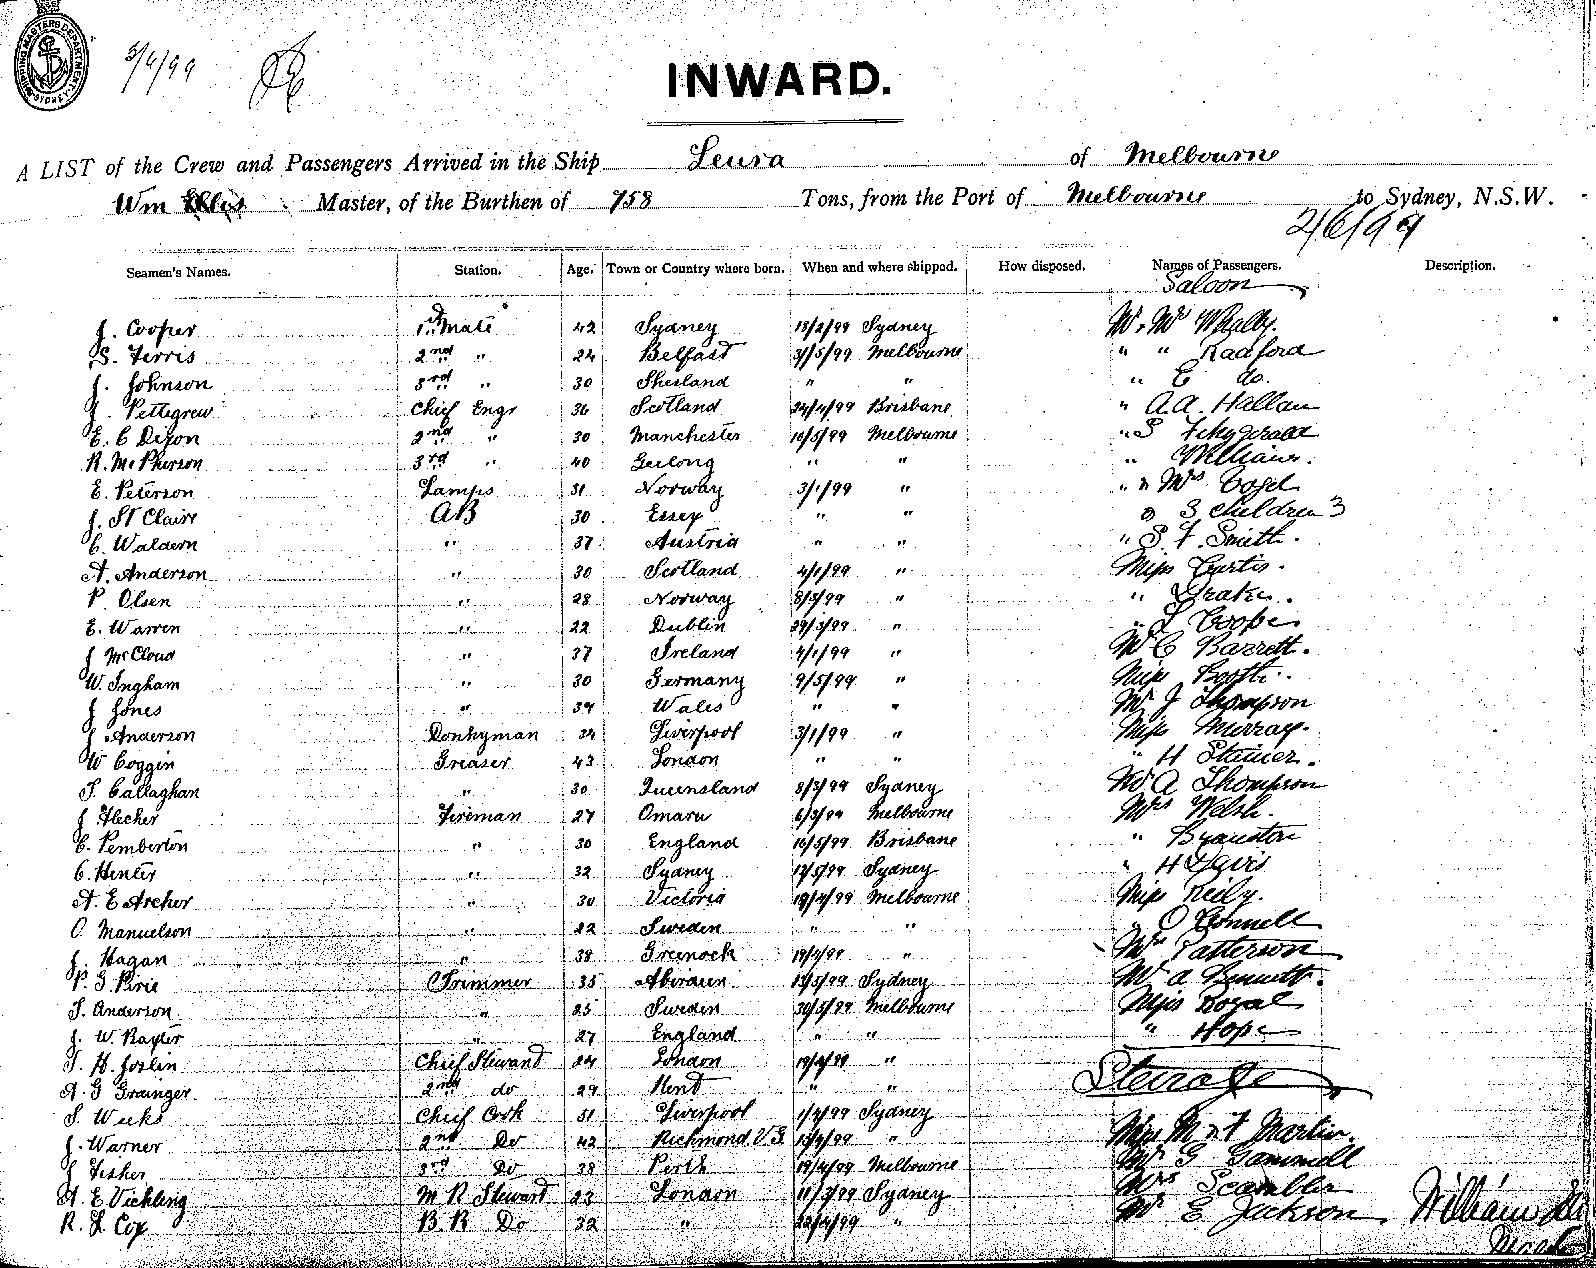 SHIPPING MASTERS DEPARTMENT SYDNEY
5/6/99
INWARD.
A LIST of the Crew and Passengers Arrived in the Ship Leura of Melbourne
Wm Ellis Master, of the Burthen of 758 Tons, from the Port of Melbourne to Sydney, N.S.W.
2/6/99
Seamen's Names. Station. Age. Town or Country where born. When and where shipped. How disposed. Names of Passengers. Description.
Saloon
J. Cooper 1st Mate 42 Sydney 13/2/99 Sydney Mr. Mrs Whalley.
S. Ferris 2nd " 24 Belfast 3/5/99 Melbourne " " Radford
J. Johnson 3rd " 30 Shesland " " " E do.
J. Pettegrew Chief Engr 36 Scotland 24/4/99 Brisbane " A.A. Hallam
E. C Dixon 2nd " 30 Manchester 16/5/99 Melbourne " S Fitzgerald
R. McPherson 3rd " 40 Geelong " " " Williams.
E. Peterson Lamps 31 Norway 3/1/99 " " & Mrs
J. St Claire AB 30 Essex " " & 3 children 3
C. Waldern " 37 Austria " " " S. F. Smith.
A. Anderson " 30 Scotland 4/1/99 " Miss Curtis.
P. Olsen " 28 Norway 8/5/99 " " Drake.
E. Warren " 22 Dublin 29/5/99 " " L Cooper
J McCloud " 37 Ireland 4/1/99 " Mr C Barrett.
W. Ingham " 30 Germany 9/5/99 " Miss Booth.
J Jones " 39 Wales " " Mr J Thompson
J. Anderson Donkyman 34 Liverpool 3/1/99 " Miss Murray.
W Coggin Greaser 43 London " " " H Steiner.
T. Callaghan " 30 Queensland 8/3/99 Sydney Mr A Thompson
J Flecher Fireman 27 Omaru 6/3/99 Melbourne Mrs Welsh.
C. Pemberton " 30 England 16/5/99 Brisbane "
C. Henler " 32 Sydney 17/5/99 Sydney " H Davis
A. E Archer " 30 Victoria 19/4/99 Melbourne Miss Reily.
O. Manuelson " 22 Sweden " " " O Connell
J. Hagan " 38 Greenock 19/4/99 " Mrs Patterson
P. G Pirie Trimmer 35 Aberdeen 13/5/99 Sydney Mr A Bennett.
T. Anderson " 25 Sweden 30/5/99 Melbourne Miss Royal
J. W. Baxter " 27 England " " " Hope
T. H. Joslin Chief Steward 34 London 19/4/99 "
A. G Grainger 2nd do 29 Kent " " Steerage
S. Weeks Chief Cook 51 Liverpool 1/4/99 Sydney
J. Warner 2nd Do 42 Richmond V.S. 13/4/99 " Miss M & F Martin.
J Fisher 3rd Do 38 Perth 19/4/99 Melbourne Mr G Gammell
A. E Vickling M R Steward 23 London 11/3/99 Sydney Mrs Scambler
R. L Cox B. R Do 32 " 22/4/99 " Mr E. Jackson.
William